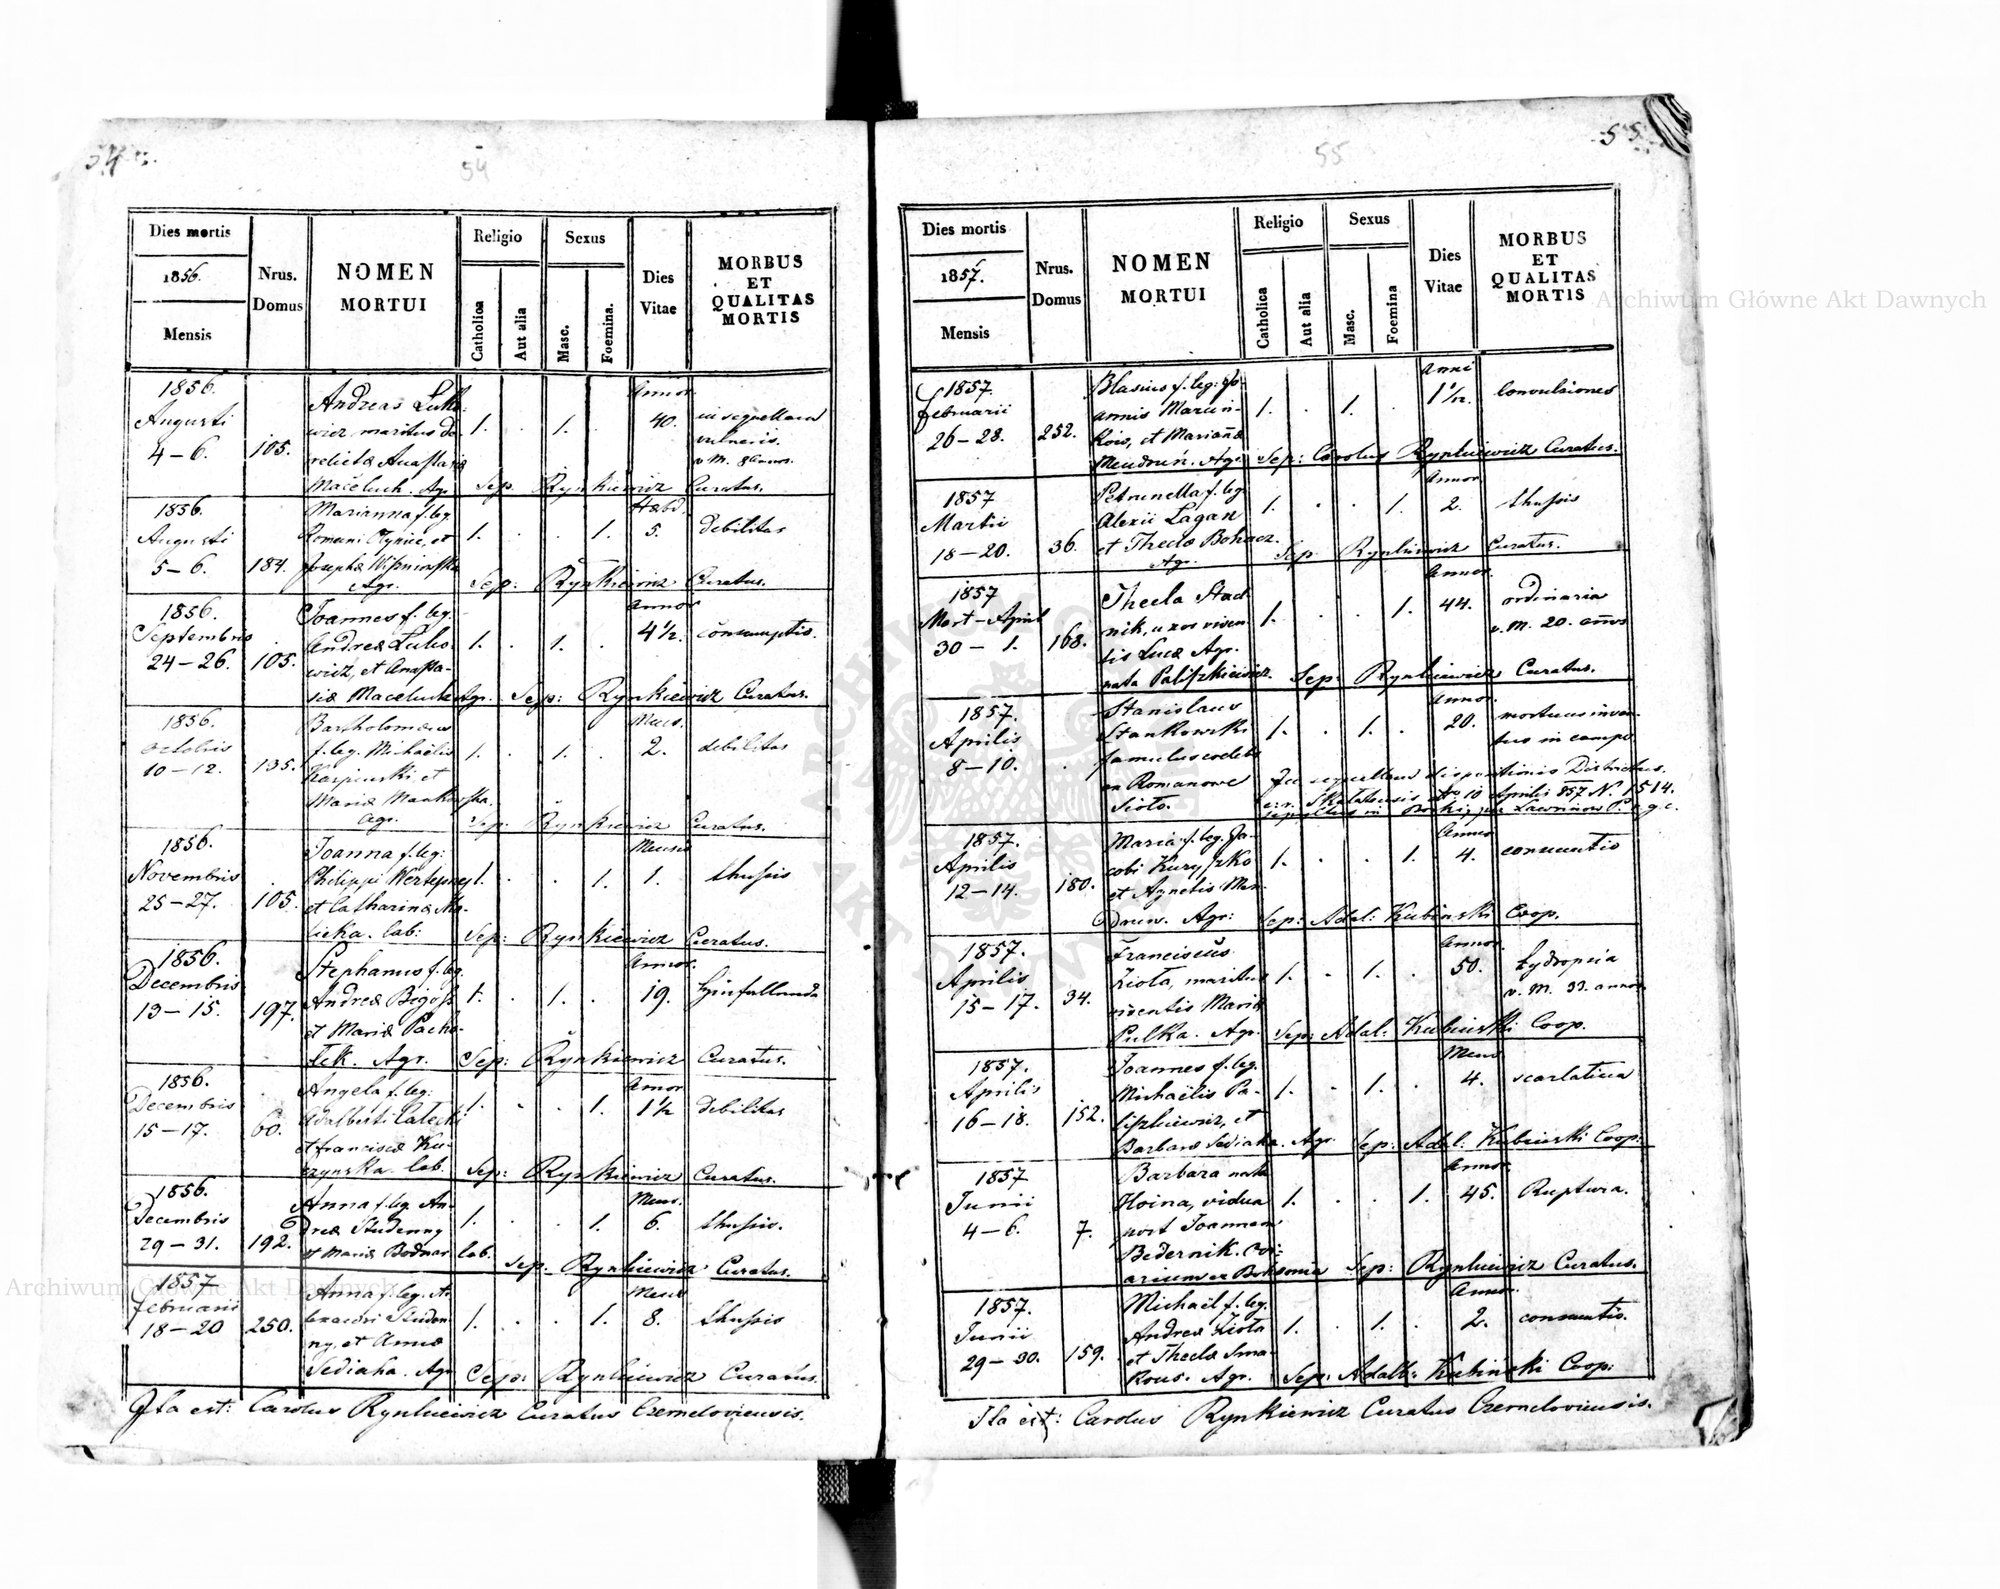 54
54
Dies mortis
1856.
Mensis
Nrus.
Domus
NOMEN
MORTUI
Religio
Catholica
Aut alia
Sexus
Masc.
Foemina.
Dies
Vitae
MORBUS
ET
QUALITAS
MORTIS
1856.
Augusti
4–6.
105.
Andreas
maritus de
relictæ Anastasiæ
Maceluch. Agr.
1. . 1. .
Annor.
40.
in sequellam
vulneris.
v. M.
Sep. Rynkiewicz Curatus.
1856.
Augusti
5–6.
184.
Marianna f. leg.
Romani et
Josephæ Wiśniowska
Agr.
1. . . 1.
Hebd.
5.
debilitas
Sep: Rynkiewicz Curatus.
1856.
Septembris
24–26.
105.
Joannes f. leg.
Andreæ
wicz, et Anasta-
siæ Maceluch Agr.
1. . 1. .
Annor
4½.
consumptio.
Sep: Rynkiewicz Curatus.
1856.
Octobris
10–12.
135.
Bartholomæus
f. leg. Michaëlis
Karpinski et
Mariæ
Agr.
1. . 1. .
Mens.
2.
debilitas
Sep: Rynkiewicz Curatus.
1856.
Novembris
25–27.
105.
Joanna f. leg:
Philippi
et Catharinæ
licka. lab:
1. . . 1.
Mensis
1.
thussis
Sep: Rynkiewicz Curatus.
1856.
Decembris
13–15.
197.
Stephanus f. leg.
Andreæ Bigos
et Mariæ Pacho-
łek. Agr.
1. . 1. .
Annor.
19.
Sep: Rynkiewicz Curatus.
1856.
Decembris
15–17.
60.
Angela f. leg:
Adalberti Całecki
et Franciscæ Ku-
czynska. lab.
1. . . 1.
Annor
1½
debilitas
Sep: Rynkiewicz Curatus.
1856.
Decembris
29–31.
192.
Anna f. leg. An-
dreæ Studenny
et Mariæ Bodnar lab.
1. . . 1.
Mens.
6.
thussis.
Sep. Rynkiewicz Curatus.
1857
Februarii
18–20
250.
Anna f. leg. A-
lexandri Studen-
ny, et Annæ
Sediaha. Agr
1. . . 1.
Mens
8.
thussis
Sep: Rynkiewicz Curatus.
Ita est: Carolus Rynkiewicz Curatus Czerneloviensis.
55
55
Dies mortis
1857.
Mensis
Nrus.
Domus
NOMEN
MORTUI
Religio
Catholica
Aut alia
Sexus
Masc.
Foemina
Dies
Vitae
MORBUS
ET
QUALITAS
MORTIS
1857.
Februarii
26–28.
252.
Blasius f. leg: Jo-
annis Marcin-
ków, et Mariannæ
Agr.
1. . 1. .
Anni
1 1/12.
Convulsiones
Sep: Carolus Rynkiewicz Curatus.
1857
Martii
18–20.
36.
Petrunella f. leg
Alexii Łagan
et Theclæ Bohacz.
Agr.
1. . . 1.
Annor.
2.
thussis
Sep. Rynkiewicz Curatus.
1857
Mart–April
30–1.
168.
Thecla Stad-
nik, uxor viven-
tis Lucæ Agr.
nata Paliszkiewicz.
1. . . 1.
Annor.
44.
ordinaria
v. M. 20. annos
Sep: Rynkiewicz Curatus.
1857.
Aprilis
8–10.
Stanislaus
Stankowski
famulus coelebs
ex Romanowe
Sioło.
1. . 1. .
Annor.
20.
mortuus inven-
tus in campo
In sequellam dispositionis Districtus
Skalatensis dto 10 Aprilis 857 N. 1514.
sepultus in
1857.
Aprilis
12–14.
180.
Maria f. leg. Ja-
cobi Kuryszko
et Agnetis Man-
Agr:
1. . . 1.
Annor
4.
consumtio
Sep: Adal: Kubinski Coop.
1857.
Aprilis
15–17.
34.
Franciscus
Zioła, maritus
viventis Mariæ
Pulka. Agr.
1. . 1. .
Annor.
50.
hydropsia
v. M. 33. annos
Sep: Adal: Kubinski Coop.
1857.
Aprilis
16–18.
152.
Joannes f. leg.
Michaëlis Pa-
liszkiewicz, et
Barbaræ Sediaha. Agr.
1. . 1. .
Mens
4.
scarlatina
Sep: Adal: Kubinski Coop:
1857
Junii
4–6.
7.
Barbara nata
Hoina, vidua
post Joannem
Bedernik.
1. . . 1.
Annor
45.
Ruptura.
Sep: Rynkiewicz Curatus.
1857.
Junii
29–30.
159.
Michaël f. leg.
Andreæ Zioła
et Theclæ Sma-
kous. Agr.
1. . 1. .
Annor.
2.
consumtio.
Sep: Adalb: Kubiński Coop:
Ita est: Carolus Rynkiewicz Curatus Czerneloviensis.
Archiwum Główne Akt Dawnych
Archiwum Główne Akt Dawnych